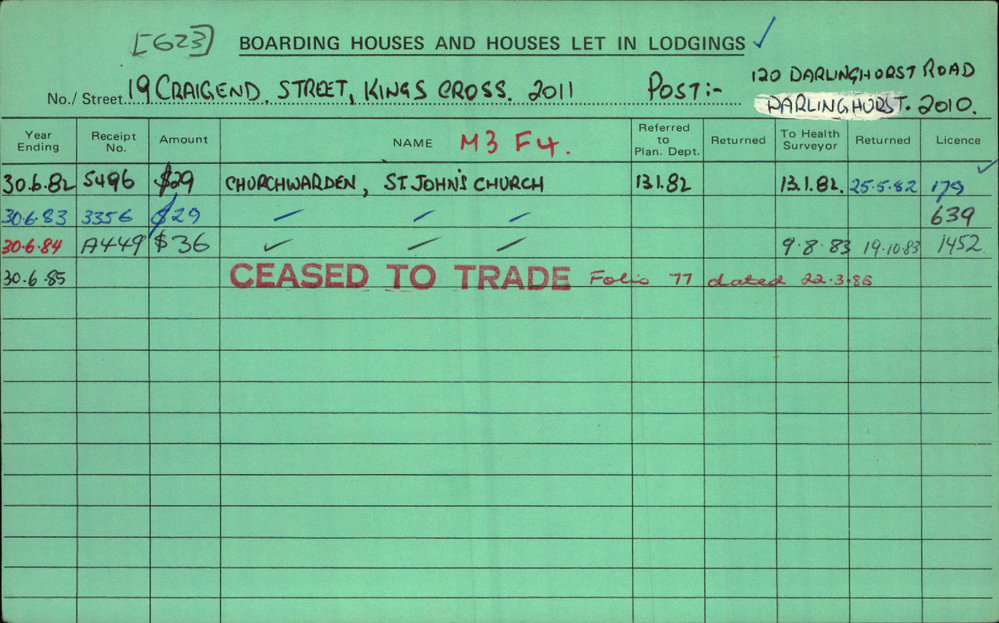 [623] BOARDING HOUSES AND HOUSES LET IN LODGINGS ✓
No./ Street 19 CRAIGEND. STREET, KINGS CROSS. 2011 POST:- 120 DARLINGHORST ROAD
DARLINGHURST. 2010.
Year Ending Receipt No. Amount NAME M3 F4. Referred to Plan. Dept. Returned To Health Surveyor Returned Licence
30.6.82 5496 $29 CHURCHWARDEN, ST. JOHN'S CHURCH 13.1.82 13.1.82. 25-5-82 179 ✓
30.6.83 3356 $29 " " " 639
30.6.84 A449 $36 " " " 9.8.83 19.10.83 1452
30.6.85 CEASED TO TRADE Folio 77 dated 22.3.85